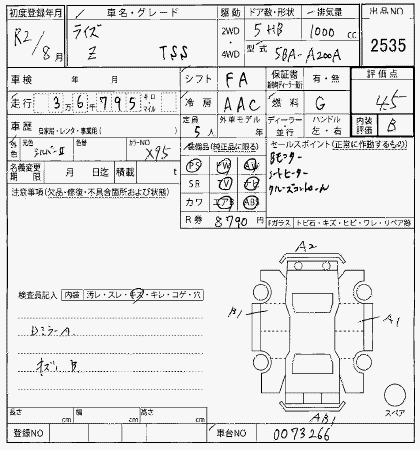 初度登録年月 車名・グレード 駆動 ドア数・形状 排気量 出品NO
R2/8月 ライズ 2WD 5HB 1000cc 2535
Z TSS 4WD 型式 5BA-A200A
車検 年 月 シフト FA 保証書 有・無 評価点
走行 36795 キロ マイル 冷房 AAC 燃料 G 4.5
車歴 自家用・レンタ・事業用( ) 定員 5人 外車モデル年 ディーラー 並行 ハンドル 左・右 内装評価 B
色 元色 シルバーII 色替 カラーNO X95 装備品(純正品に限る) セールスポイント(正常に作動するもの)
名義変更期限 月 日迄 積載 t PS PW AW Bモニター
注意事項(欠品・修復・不具合箇所および状態) SR TV ナビ シートヒーター
カワ エアB ABS クルーズコントロール
R券 8790円 Fガラス トビ石・キズ・ヒビ・ワレ・リペア跡
A2
検査員記入 内装 汚レ・スレ・キズ・キレ・コゲ・穴
A1 A1
DミラーA
キズ、B
スペア
長さ cm 幅 cm 高さ cm AB1
登録NO 車台NO 0073266